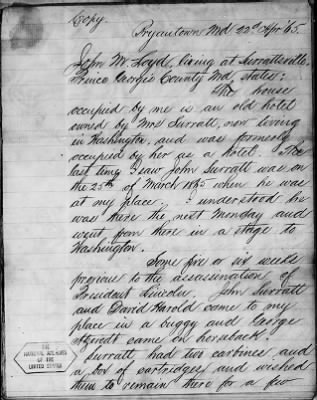 Copy.
Bryantown Md 22d Apr '65.
John M. Lloyd, living at Surrattsville,
Prince Georges County Md, states:
The house
occupied by me is an old hotel
owned by Mrs Surratt, now living
in Washington, and was formerly
occupied by her as a hotel. The
last time I saw John Surratt was on
the 25th of March 1865 when he was
at my place. I understood he
was there the next Monday and
went from there in a stage to
Washington.
Some five or six weeks
previous to the assassination of
President Lincoln, John Surratt
and David Harold came to my
place in a buggy and George
Atzerodt came on horseback.
Surratt had two carbines and
a box of cartridges and wished
them to remain there for a few
THE
NATIONAL ARCHIVES
OF THE
UNITED STATES